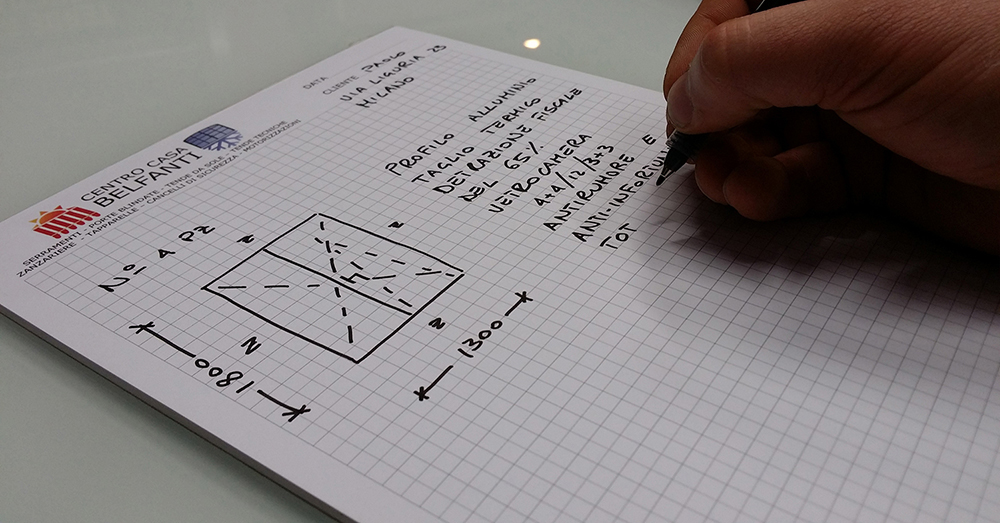 CENTRO CASA
BELFANTI
SERRAMENTI - PORTE BLINDATE - TENDE DA SOLE - TENDE TECNICHE
ZANZARIERE - TAPPARELLE - CANCELLI DI SICUREZZA - MOTORIZZAZIONI
DATA
CLIENTE PAOLO
VIA LIGURIA 23
MILANO
PROFILO ALLUMINIO
TAGLIO TERMICO
DETRAZIONE FISCALE
DEL 65%
VETROCAMERA
4+4/12/3+3
ANTIRUMORE E
ANTI-INFORTU
TOT
N° 1 PZ
Z
Z
H
Z
Z
1800
1300